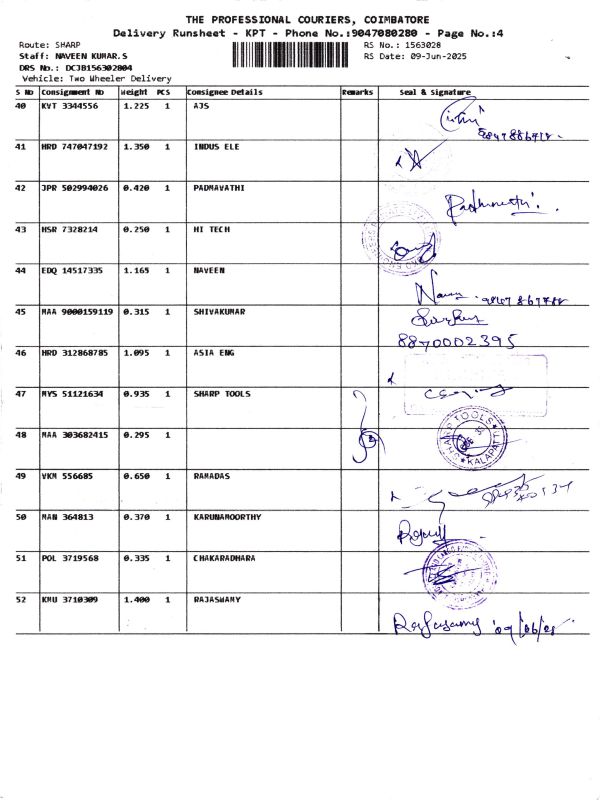 THE PROFESSIONAL COURIERS, COIMBATORE
Delivery Runsheet - KPT - Phone No.:9047080280 - Page No.:4
Route: SHARP RS No.: 1563028
Staff: NAVEEN KUMAR.S RS Date: 09-Jun-2025
DRS No.: DCJB156302804
Vehicle: Two Wheeler Delivery
S No Consignment No Weight PCS Consignee Details Remarks Seal & Signature
40 KVT 3344556 1.225 1 AJS
41 HRD 747047192 1.350 1 INDUS ELE
42 JPR 502994026 0.420 1 PADMAVATHI
43 HSR 7328214 0.250 1 HI TECH
44 EDQ 14517335 1.165 1 NAVEEN
45 MAA 9000159119 0.315 1 SHIVAKUMAR
8870002395
46 HRD 312868785 1.095 1 ASIA ENG
47 MYS 51121634 0.935 1 SHARP TOOLS
SHARP TOOLS
KALAPATTI
48 MAA 303682415 0.295 1
49 VKM 556685 0.650 1 RAMADAS
50 MAN 364813 0.370 1 KARUNAMOORTHY
51 POL 3719568 0.335 1 CHAKARADHARA
52 KMU 3710309 1.400 1 RAJASWAMY